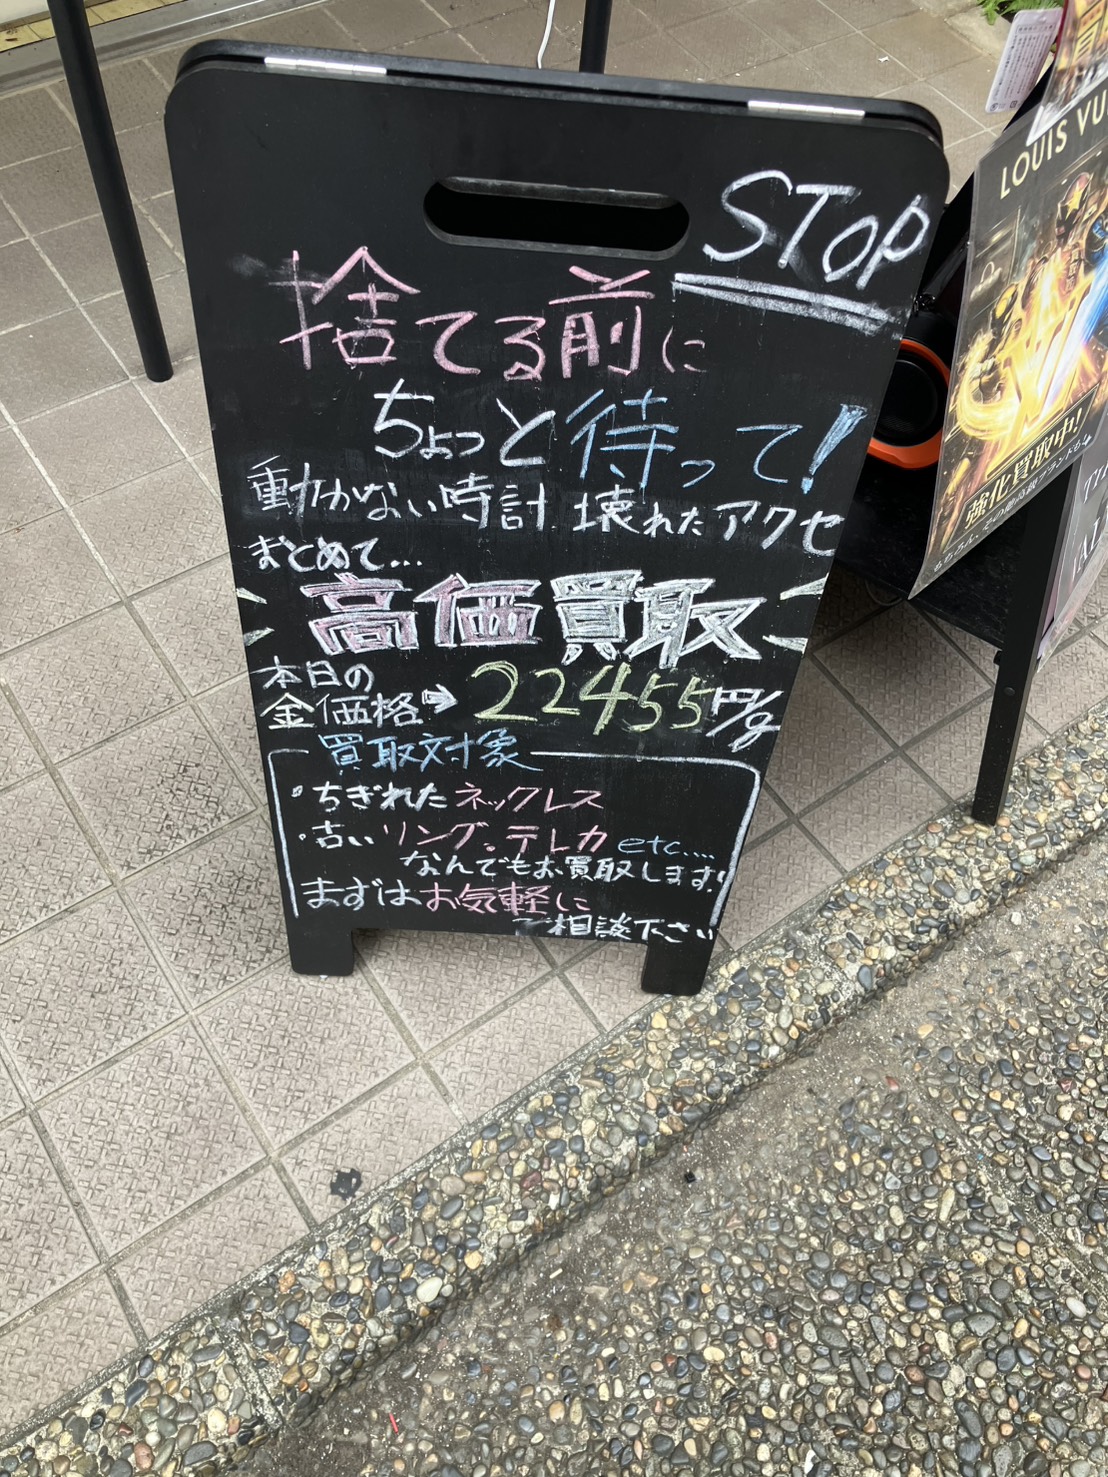 STOP
捨てる前に
ちょっと待って!
動かない時計 壊れたアクセ
まとめて...
高価買取
本日の
金価格→22455円/g
買取対象
・ちぎれたネックレス
・古いリング・テレカ etc....
なんでもお買取します!
まずはお気軽に
ご相談下さい
LOUIS VU
強化買取中!